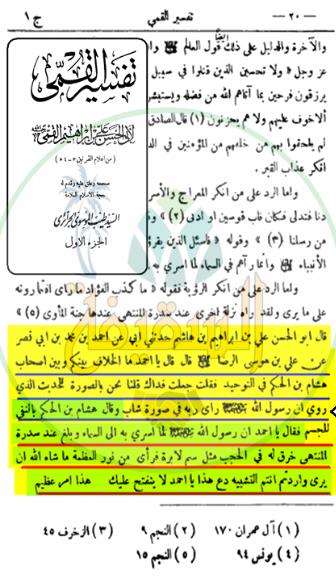 — ٢٠ —
تفسير القمي
ج ١
والآخرة والدليل على ذلك ايضاً قول العالم
عز وجل « ولا تحسبن الذين قتلوا في سبيل
يرزقون فرحين بما آتاهم الله من فضله ويستبشر
ألا خوف عليهم ولا هم يحزنون (١) قال الصادق
لم يلحقوا بهم من خلفهم من المؤمنين في الد
انكر عذاب القبر .
واما الرد على من انكر المعراج والأسر
دنا فتدلى فكان قاب قوسين او ادنى (٢) » وقو
من رسلنا (٣) » وقوله « فاسئل الذين يقرؤ
الأنبياء
في السماء لما اسري به
تفسير القمي
لابي الحسن علي بن ابراهيم القمي
(من اعلام القرنين ٣ - ٤ هـ)
صححه وعلق عليه وقدم له
حجة الاسلام العلامة
السيد طيب الموسوي الجزائري
الجزء الاول
واما الرد على من انكر الرؤية فقوله « ما كذب الفؤاد ما رأى افتمارونه
على ما يرى ولقد رآه نزلة اخرى عند سدرة المنتهى عندها جنة المأوى (٥) »
قال ابو الحسن علي بن ابراهيم بن هاشم حدثني ابي عن احمد بن محمد بن ابي نصر
عن علي بن موسى الرضا قال قال يا احمد ما الخلاف بينكم وبين اصحاب
هشام بن الحكم في التوحيد فقلت جعلت فداك قلنا نحن بالصورة للحديث الذي
روي ان رسول الله رأى ربه في صورة شاب وقال هشام بن الحكم بالنفي
للجسم فقال يا احمد ان رسول الله لما اسري به الى السماء وبلغ عند سدرة
المنتهى خرق له في الحجب مثل سم الابرة فرأى من نور العظمة ما شاء الله ان
يرى واردتم انتم التشبيه دع هذا يا احمد لا ينفتح عليك هذا امر عظيم
(١) آل عمران ١٧٠ (٢) النجم ٩ (٣) الزخرف ٤٥
(٤) يونس ٩٤ (٥) النجم ١٥